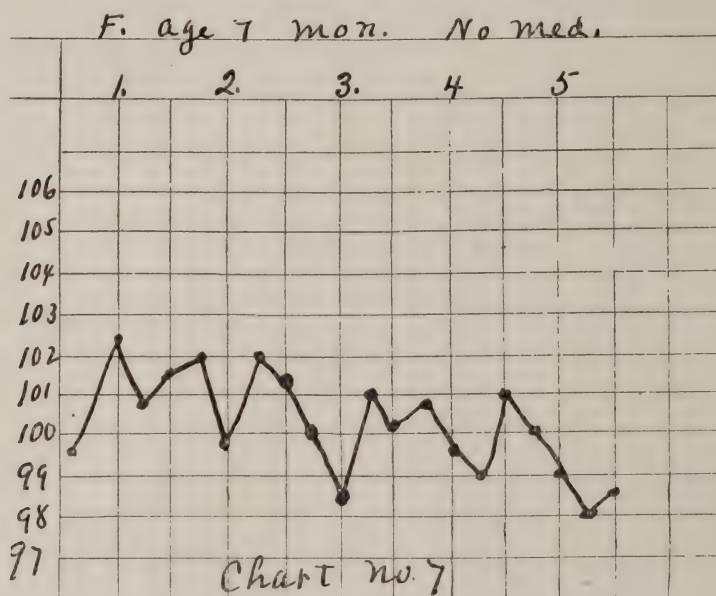 F. age 7 mon. No med.
1. 2. 3. 4 5
106
105
104
103
102
101
100
99
98
97
Chart no. 7